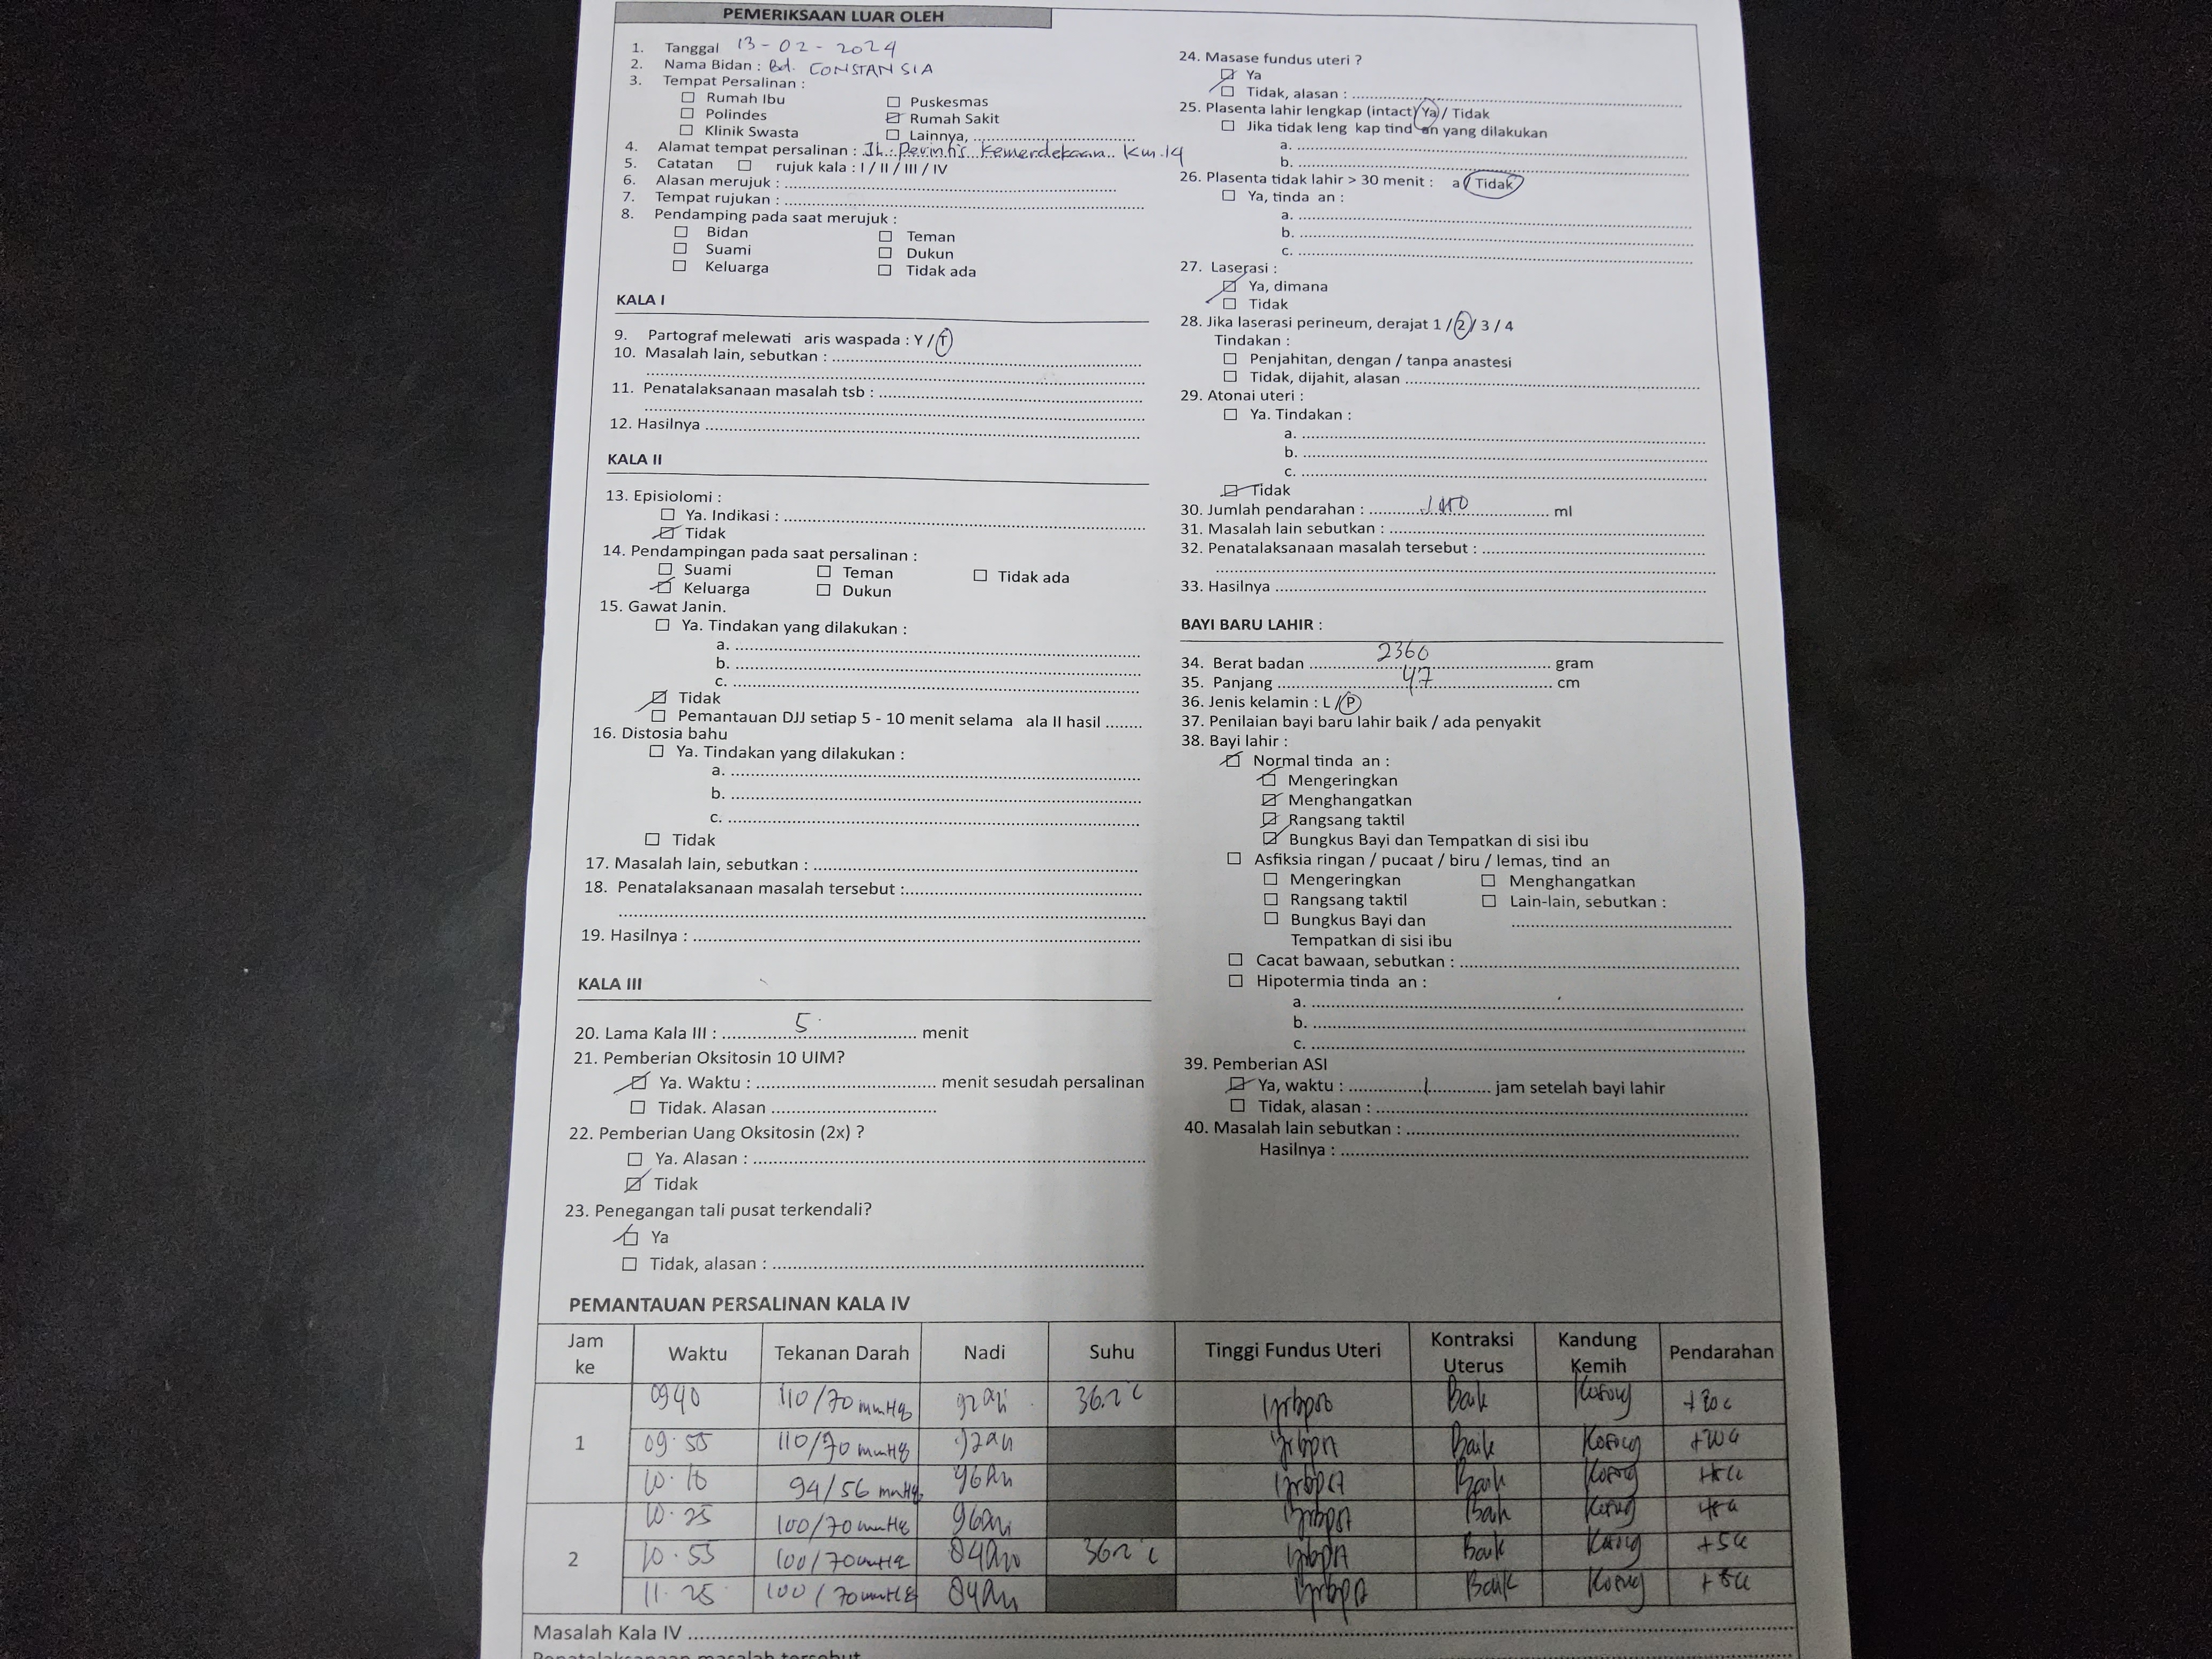 PEMERIKSAAN LUAR OLEH
1. Tanggal 13 - 02 - 2024
2. Nama Bidan : Bd. CONSTANSIA
3. Tempat Persalinan :
☐ Rumah Ibu ☐ Puskesmas
☐ Polindes ☑ Rumah Sakit
☐ Klinik Swasta ☐ Lainnya, ..............................
4. Alamat tempat persalinan : Jl. Perintis Kemerdekaan Km.14
5. Catatan ☐ rujuk kala : I / II / III / IV
6. Alasan merujuk : ..............................
7. Tempat rujukan : ..............................
8. Pendamping pada saat merujuk :
☐ Bidan ☐ Teman
☐ Suami ☐ Dukun
☐ Keluarga ☐ Tidak ada
KALA I
9. Partograf melewati aris waspada : Y / T
10. Masalah lain, sebutkan : ..............................
..............................
11. Penatalaksanaan masalah tsb : ..............................
..............................
12. Hasilnya ..............................
KALA II
13. Episiolomi :
☐ Ya. Indikasi : ..............................
☑ Tidak
14. Pendampingan pada saat persalinan :
☐ Suami ☐ Teman ☐ Tidak ada
☑ Keluarga ☐ Dukun
15. Gawat Janin.
☐ Ya. Tindakan yang dilakukan :
a. ..............................
b. ..............................
c. ..............................
☑ Tidak
☐ Pemantauan DJJ setiap 5 - 10 menit selama ala II hasil ........
16. Distosia bahu
☐ Ya. Tindakan yang dilakukan :
a. ..............................
b. ..............................
c. ..............................
☐ Tidak
17. Masalah lain, sebutkan : ..............................
18. Penatalaksanaan masalah tersebut :..............................
..............................
19. Hasilnya : ..............................
KALA III
20. Lama Kala III : 5 menit
21. Pemberian Oksitosin 10 UIM?
☑ Ya. Waktu : .............................. menit sesudah persalinan
☐ Tidak. Alasan ..............................
22. Pemberian Uang Oksitosin (2x) ?
☐ Ya. Alasan : ..............................
☑ Tidak
23. Penegangan tali pusat terkendali?
☑ Ya
☐ Tidak, alasan : ..............................
24. Masase fundus uteri ?
☑ Ya
☐ Tidak, alasan : ..............................
25. Plasenta lahir lengkap (intact) Ya / Tidak
☐ Jika tidak leng kap tind an yang dilakukan
a. ..............................
b. ..............................
26. Plasenta tidak lahir > 30 menit : a / Tidak
☐ Ya, tinda an :
a. ..............................
b. ..............................
c. ..............................
27. Laserasi :
☑ Ya, dimana
☐ Tidak
28. Jika laserasi perineum, derajat 1 / 2 / 3 / 4
Tindakan :
☐ Penjahitan, dengan / tanpa anastesi
☐ Tidak, dijahit, alasan ..............................
29. Atonai uteri :
☐ Ya. Tindakan :
a. ..............................
b. ..............................
c. ..............................
☑ Tidak
30. Jumlah pendarahan : .............................. ml
31. Masalah lain sebutkan : ..............................
32. Penatalaksanaan masalah tersebut : ..............................
..............................
33. Hasilnya ..............................
BAYI BARU LAHIR :
34. Berat badan 2360 gram
35. Panjang 47 cm
36. Jenis kelamin : L / P
37. Penilaian bayi baru lahir baik / ada penyakit
38. Bayi lahir :
☑ Normal tinda an :
☑ Mengeringkan
☑ Menghangatkan
☑ Rangsang taktil
☑ Bungkus Bayi dan Tempatkan di sisi ibu
☐ Asfiksia ringan / pucaat / biru / lemas, tind an
☐ Mengeringkan ☐ Menghangatkan
☐ Rangsang taktil ☐ Lain-lain, sebutkan :
☐ Bungkus Bayi dan ..............................
Tempatkan di sisi ibu
☐ Cacat bawaan, sebutkan : ..............................
☐ Hipotermia tinda an :
a. ..............................
b. ..............................
c. ..............................
39. Pemberian ASI
☑ Ya, waktu : 1 jam setelah bayi lahir
☐ Tidak, alasan : ..............................
40. Masalah lain sebutkan : ..............................
Hasilnya : ..............................
PEMANTAUAN PERSALINAN KALA IV
Jam ke Waktu Tekanan Darah Nadi Suhu Tinggi Fundus Uteri Kontraksi Uterus Kandung Kemih Pendarahan
1 0940 110/70 mmHg 36.2°C Baik Kosong
09.55 110/70 mmHg Baik Kosong
10.10 94/56 mmHg Baik Kosong
2 10.25 100/70 mmHg Baik Kosong
10.55 100/70 mmHg Baik Kosong
11.25 100/70 mmHg Baik Kosong
Masalah Kala IV ..............................
Penatalaksanaan masalah tersebut